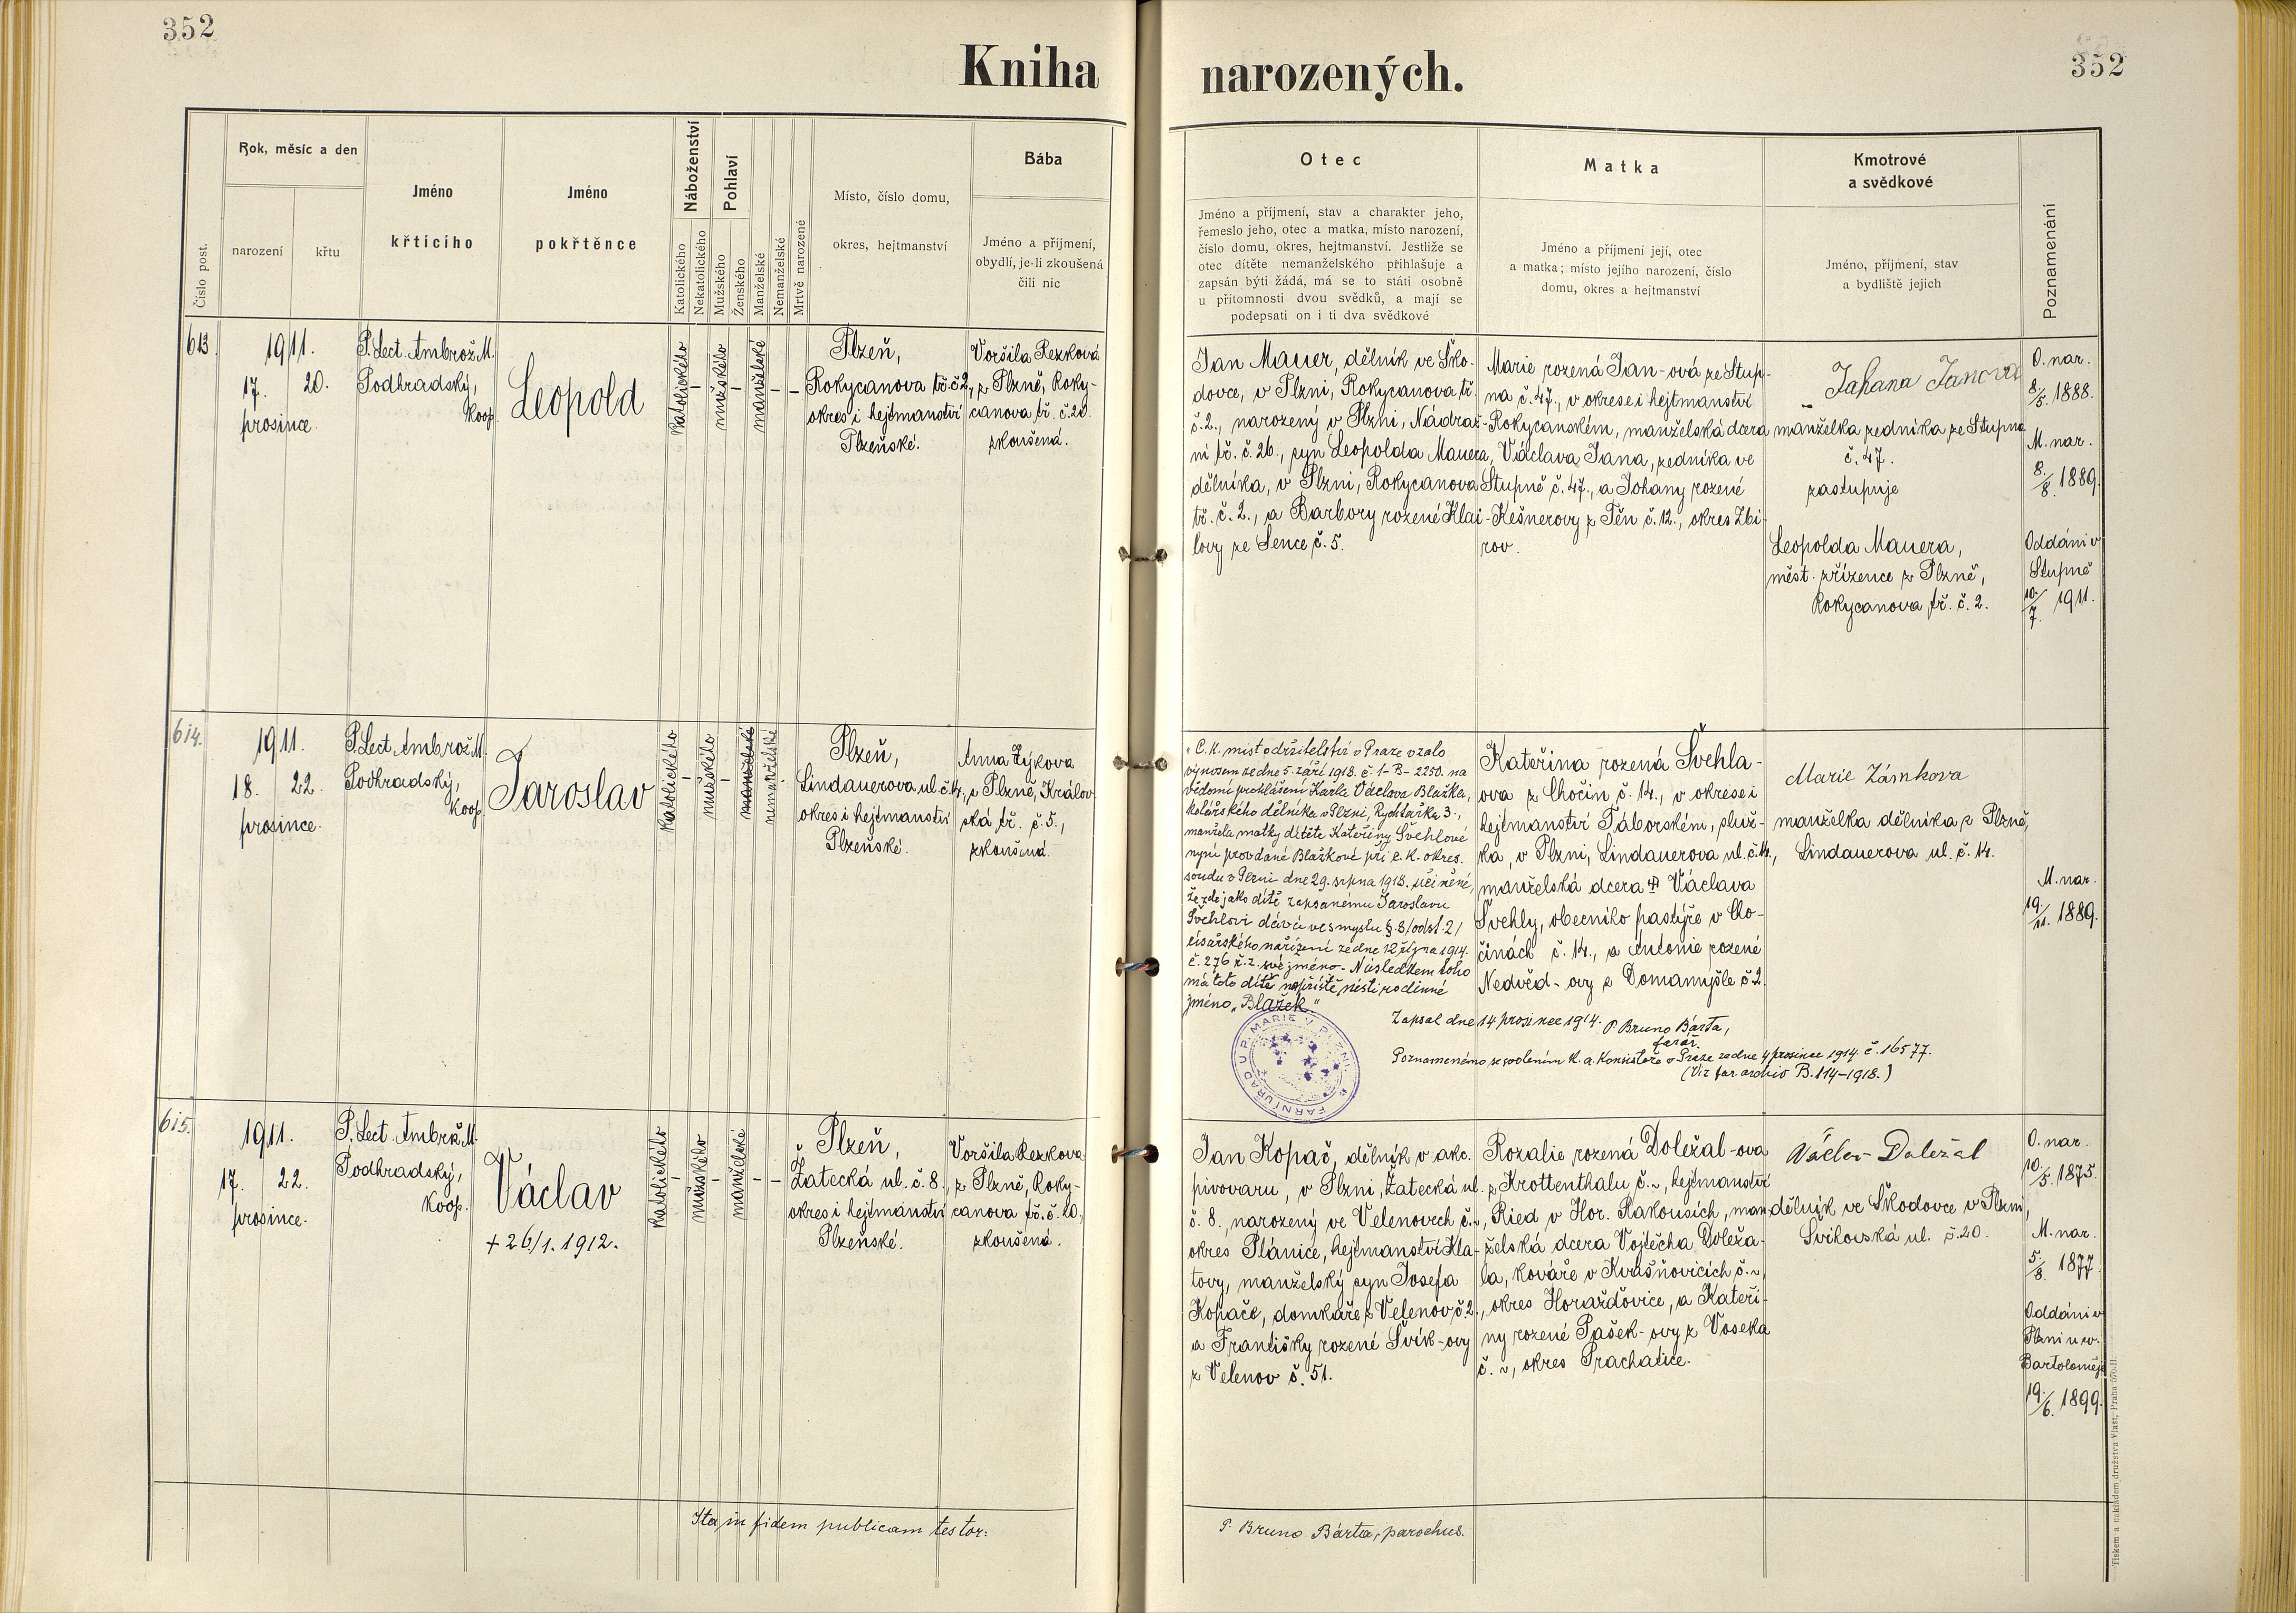 352
Kniha narozených.
352
Číslo post.
Rok, měsíc a den
narození
křtu
Jméno
křticího
Jméno
pokřtěnce
Náboženství
Katolického
Nekatolického
Pohlaví
Mužského
Ženského
Manželské
Nemanželské
Mrtvě narozené
Místo, číslo domu,
okres, hejtmanství
Bába
Jméno a příjmení,
obydlí, je-li zkoušená
čili nic
Otec
Jméno a příjmení, stav a charakter jeho,
řemeslo jeho, otec a matka, místo narození,
číslo domu, okres, hejtmanství. Jestliže se
otec dítěte nemanželského přihlašuje a
zapsán býti žádá, má se to státi osobně
u přítomnosti dvou svědků, a mají se
podepsati on i ti dva svědkové
Matka
Jméno a příjmení její, otec
a matka; místo jejího narození, číslo
domu, okres a hejtmanství
Kmotrové
a svědkové
Jméno, příjmení, stav
a bydliště jejich
Poznamenání
613.
1911.
17. 20.
prosince.
P. Lect. Ambrož M.
Podhradský,
koop.
Leopold
katolického
-
mužského
-
manželské
-
-
Plzeň,
Rokycanova tř. č. 2,
okres i hejtmanství
Plzeňské.
Voršila Rezková
z Plzně, Roky-
canova tř. č. 20.
zkoušená.
Jan Mauer, dělník ve Ško-
dovce, v Plzni, Rokycanova tř.
č. 2., narozený v Plzni, Nádraž-
ní tř. č. 26., syn Leopolda Mauera,
dělníka, v Plzni, Rokycanova
tř. č. 2., a Barbory rozené Klai-
lovy ze Sence č. 5.
Marie rozená Jan-ová ze Stup-
na č. 47., v okrese i hejtmanství
Rokycanském, manželská dcera
Václava Jana, zedníka ve
Stupně č. 47., a Johany rozené
Kešnerovy z Těn č. 12., okres Zbi-
rov.
Johana Janova
manželka zedníka ze Stupna
č. 47.
zastupuje
Leopolda Mauera,
měst. zřízence z Plzně,
Rokycanova tř. č. 2.
O. nar.
8./5. 1888.
M. nar.
8./8. 1889.
Oddáni v
Stupně
10./7. 1911.
614.
1911.
18. 22.
prosince.
P. Lect. Ambrož M.
Podhradský,
koop.
Jaroslav
katolického
-
mužského
-
manželské
nemanželské
-
Plzeň,
Lindauerova ul. č. 14.,
okres i hejtmanství
Plzeňské.
Anna Zýkova
z Plzně, Králov-
ská tř. č. 5.,
zkoušená.
"C. k. místodržitelství v Praze vzalo
výnosem ze dne 5. září 1918. č. 1-B-2250. na
vědomí prohlášení Karla Václava Blažka,
kolářského dělníka v Plzni, Rychtářka 3.,
manžela matky dítěte Kateřiny Švehlové
nyní provdané Blažkové při c. k. okres.
soudu v Plzni dne 29. srpna 1918. učiněné,
že zde jako dítě zapsanému Jaroslavu
Švehlovi dává ve smyslu §. 8/odst. 2/
císařského nařízení ze dne 12 října 1914.
č. 276 ř. z. své jméno. Následkem toho
má toto dítě napříště nésti rodinné
jméno „Blažek"
Zapsal dne 14 prosince 1914. P. Bruno Bárta,
farář.
Poznamenáno se svolením k. a. Konsistoře v Praze ze dne 4 prosince 1914. č. 16577.
(Viz far. archiv B. 114-1918.)
FARNÍ ÚŘAD U P. MARIE V PLZNI
Kateřina rozená Švehla-
ova z Chočin č. 14., v okrese i
hejtmanství Táborském, služ-
ka, v Plzni, Lindauerova ul. č. 14.,
manželská dcera † Václava
Švehly, obecního pastýře v Cho-
činách č. 14., a Antonie rozené
Nedvěd-ovy z Domamyšle č 2.
Marie Zámkova
manželka dělníka z Plzně,
Lindauerova ul. č. 14.
M. nar.
19./11. 1889.
615.
1911.
17. 22.
prosince.
P. Lect. Ambrž M.
Podhradský,
koop.
Václav
+ 26/1. 1912.
katolického
-
mužského
-
manželské
-
-
Plzeň,
Žatecká ul. č. 8.,
okres i hejtmanství
Plzeňské.
Voršila Rezkova
z Plzně, Roky-
canova tř. č. 20,
zkoušená.
Jan Kopač, dělník v akc.
pivovaru, v Plzni, Žatecká ul.
č. 8., narozený ve Velenovech č. ~,
okres Plánice, hejtmanství Kla-
tovy, manželský syn Josefa
Kopače, domkáře z Velenov č. 2.
a Františky rozené Švík-ovy
z Velenov č. 51.
Rozalie rozená Doležal-ova
z Krottenthalu č. ~, hejtmanství
Ried v Hor. Rakousích, man-
želská dcera Vojtěcha Doleža-
la, kováře v Kvášňovicích č. ~,
okres Horažďovice, a Kateři-
ny rozené Pašek-ovy z Voseka
č. ~, okres Prachatice.
Václav Doležal
dělník ve Škodovce v Plzni,
Švihovská ul. č. 20.
O. nar.
10./5. 1875.
M. nar.
5./8. 1877.
Oddáni v
Plzni u sv.
Bartoloměje
19./6. 1899.
Ita in fidem publicam testor:
P. Bruno Bárta, parochus.
Tiskem a nákladem družstva Vlast, Praha 570-II.